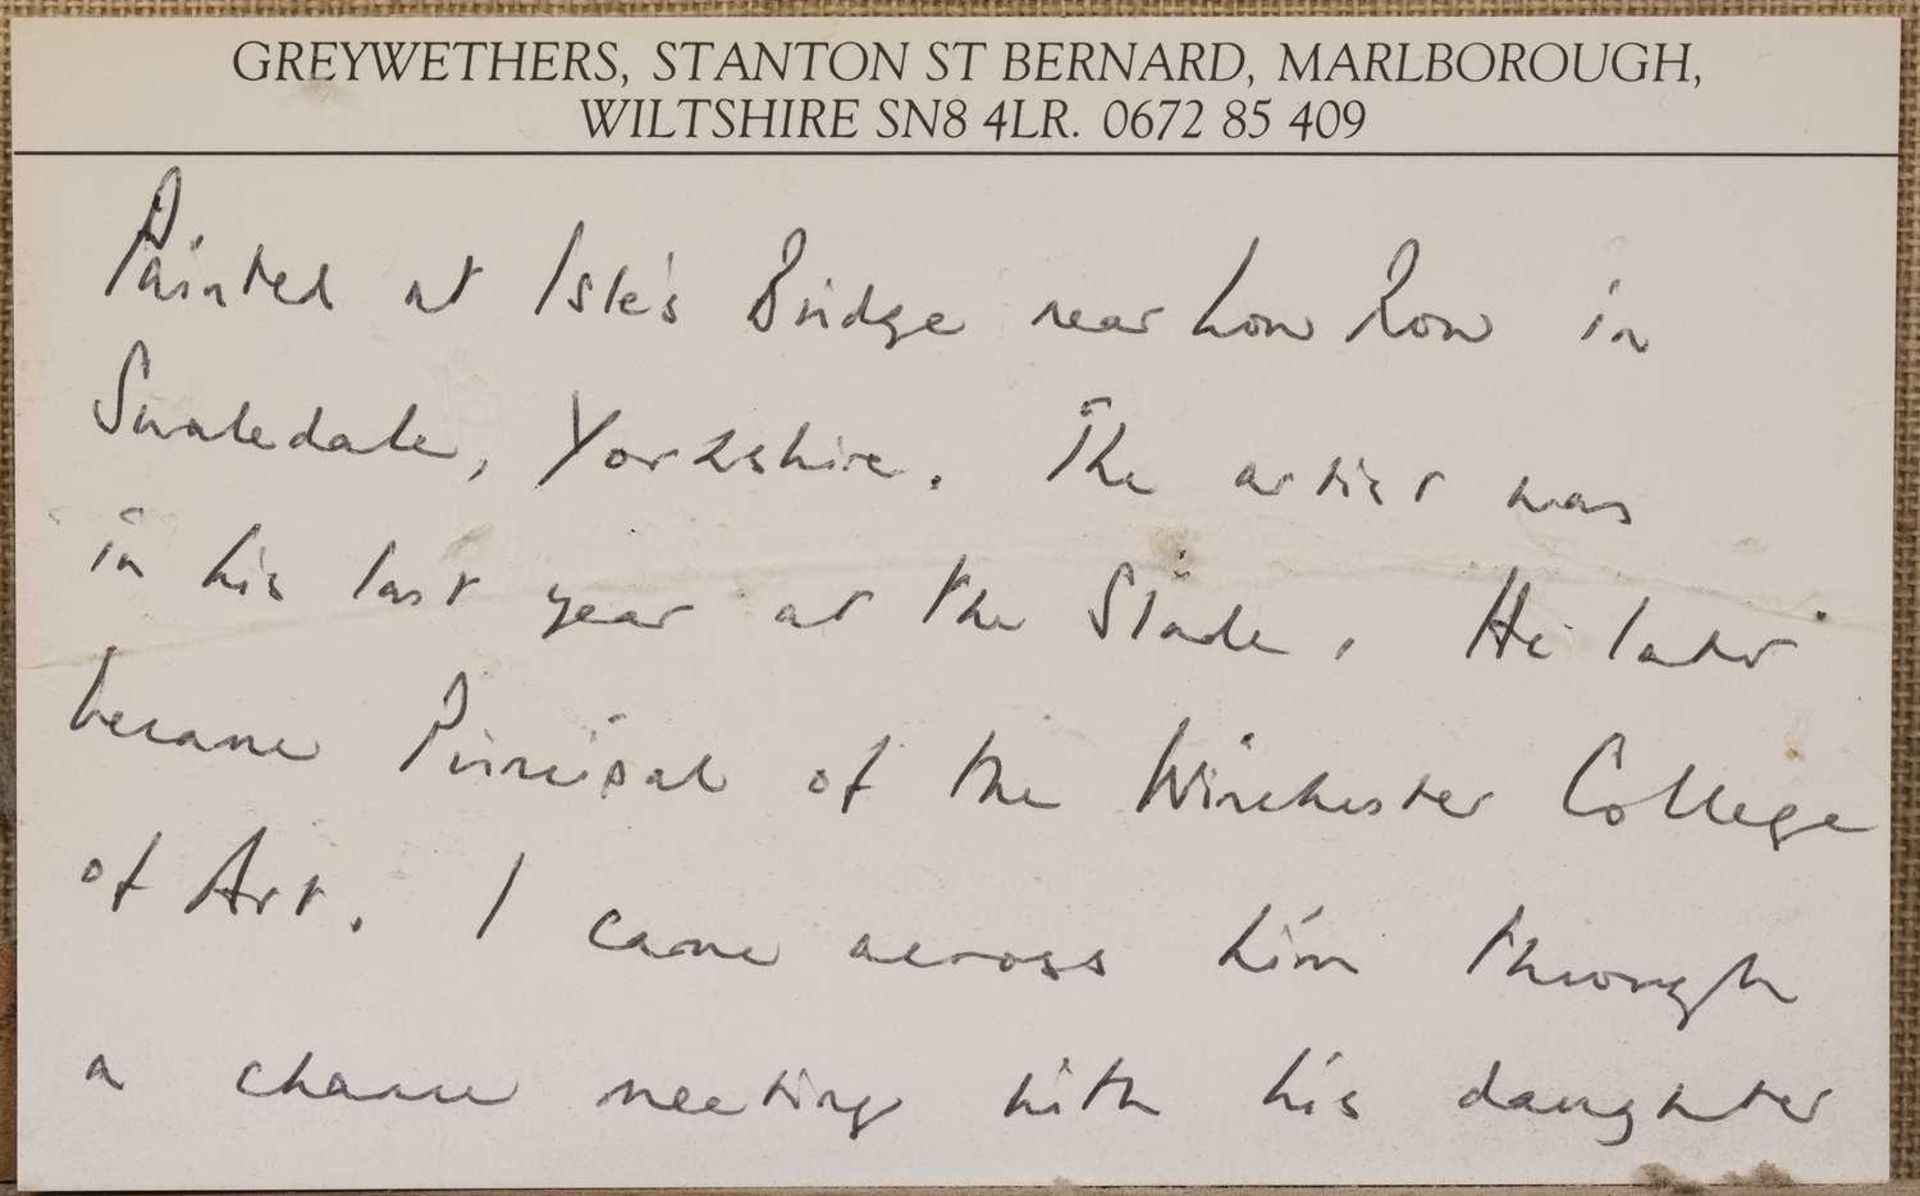 GREYWETHERS, STANTON ST BERNARD, MARLBOROUGH,
WILTSHIRE SN8 4LR. 0672 85 409
Painted at Isle's Bridge near Low Row in
Swaledale, Yorkshire. The artist was
in his last year at the Slade. He later
became Principal of the Winchester College
of Art. I came across him through
a chance meeting with his daughter